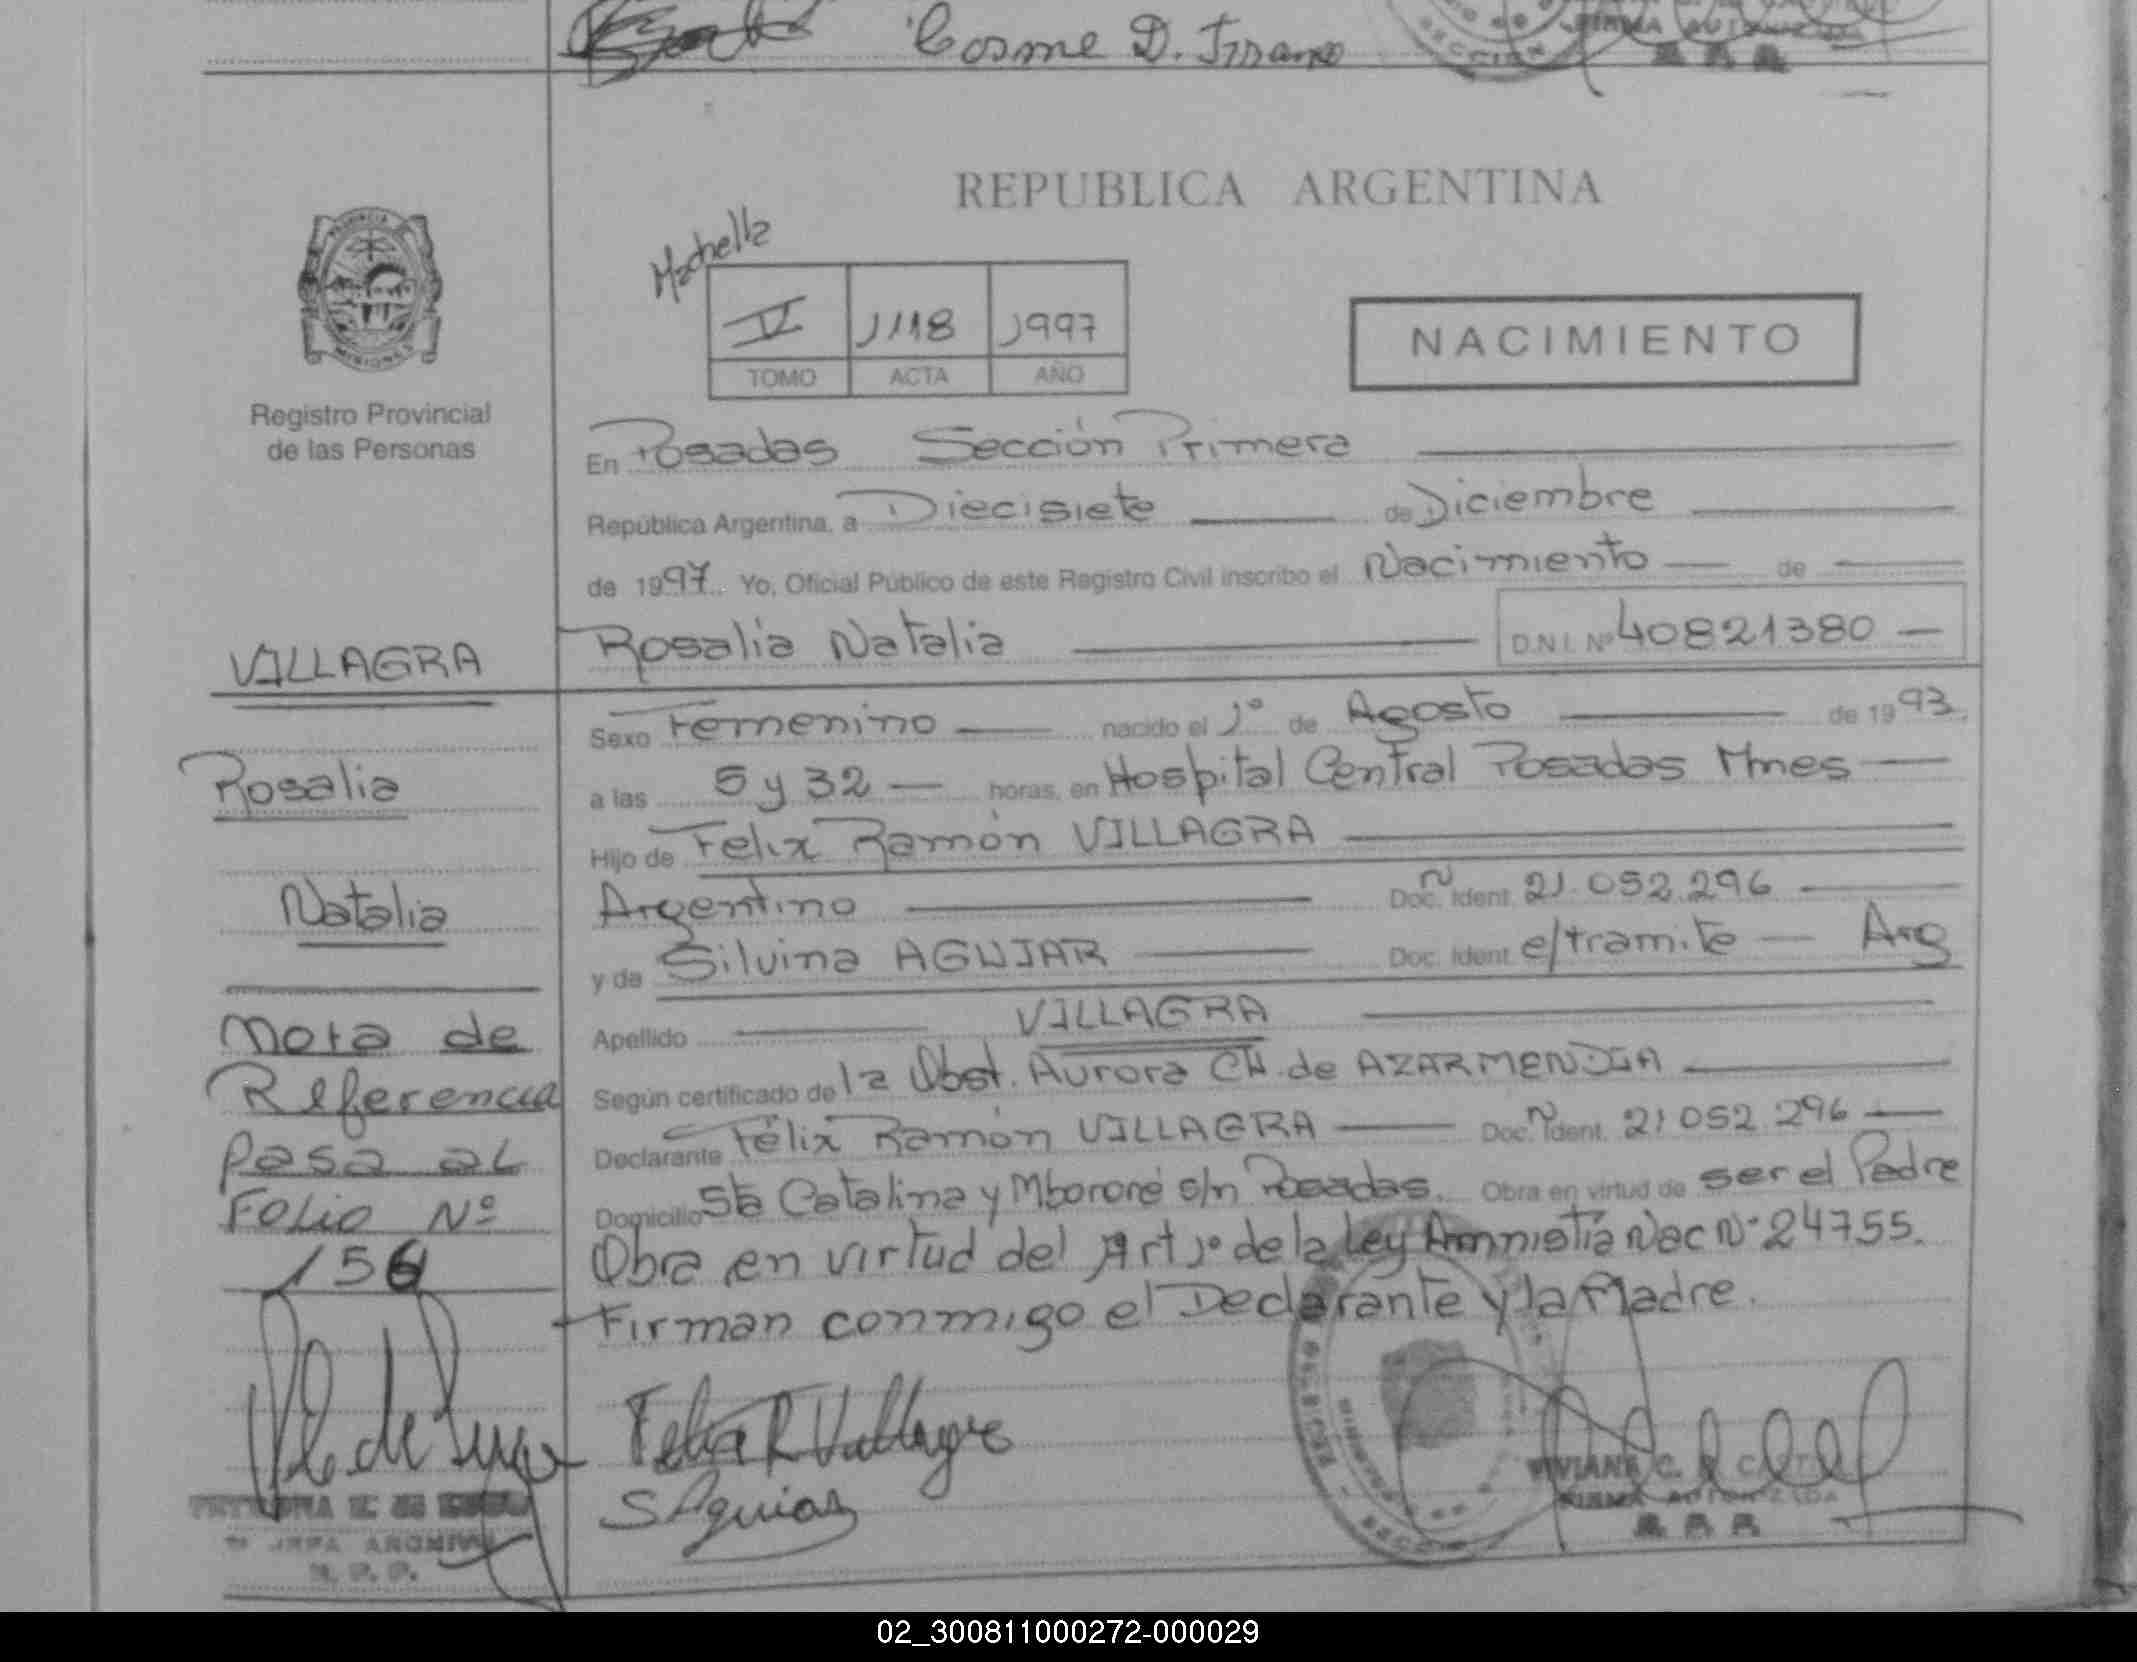 Cosme D.
FIRMA AUTORIZADA
REPUBLICA ARGENTINA
PROVINCIA
MISIONES
Registro Provincial
de las Personas
V 1118 1997
TOMO ACTA AÑO
NACIMIENTO
En Posadas Sección Primera
República Argentina, a Diecisiete de Diciembre
de 1997. Yo, Oficial Público de este Registro Civil inscribo el Nacimiento de
Rosalia Natalia D.N.I. Nº 40821380
VILLAGRA
Rosalia
Natalia
Nota de
Referencia
Pasa al
Folio Nº
156
Sexo Femenino nacido el 1º de Agosto de 1993.
a las 5 y 32 horas, en Hospital Central Posadas Mnes
Hijo de Felix Ramón VILLAGRA
Argentino Doc. Ident. 21.052.296
y de Silvina AGUIAR Doc. Ident. e/tramite Arg
Apellido VILLAGRA
Según certificado de la Obst. Aurora CH. de AZARMENDIA
Declarante Félix Ramón VILLAGRA Doc. Ident. 21 052 296
Domicilio Sta Catalina y Mbororé s/n Posadas. Obra en virtud de ser el Padre
Obra en virtud del Art 1º de la Ley Amnistía Nac Nº 24755.
Firman conmigo el Declarante y la Madre.
Felix R Villagra
S Aguiar
VIVIANA C.
FIRMA AUTORIZADA
JEFA ARCHIVO
R. P. P.
02_300811000272-000029